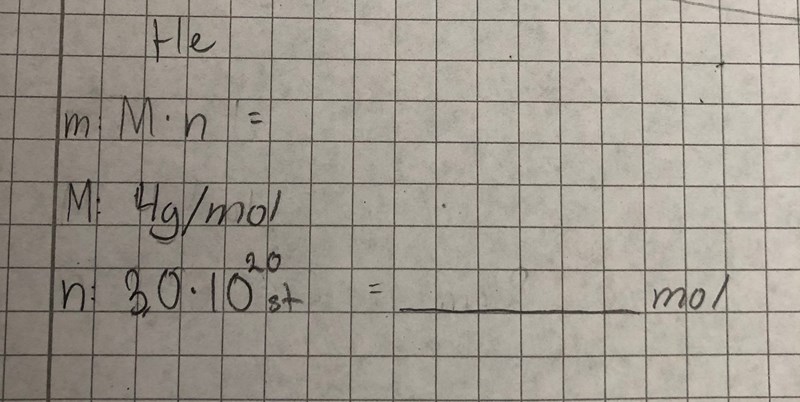 He
m: M · n =
M: 4g/mol
n: 3,0 · 10²⁰ st = ________ mol